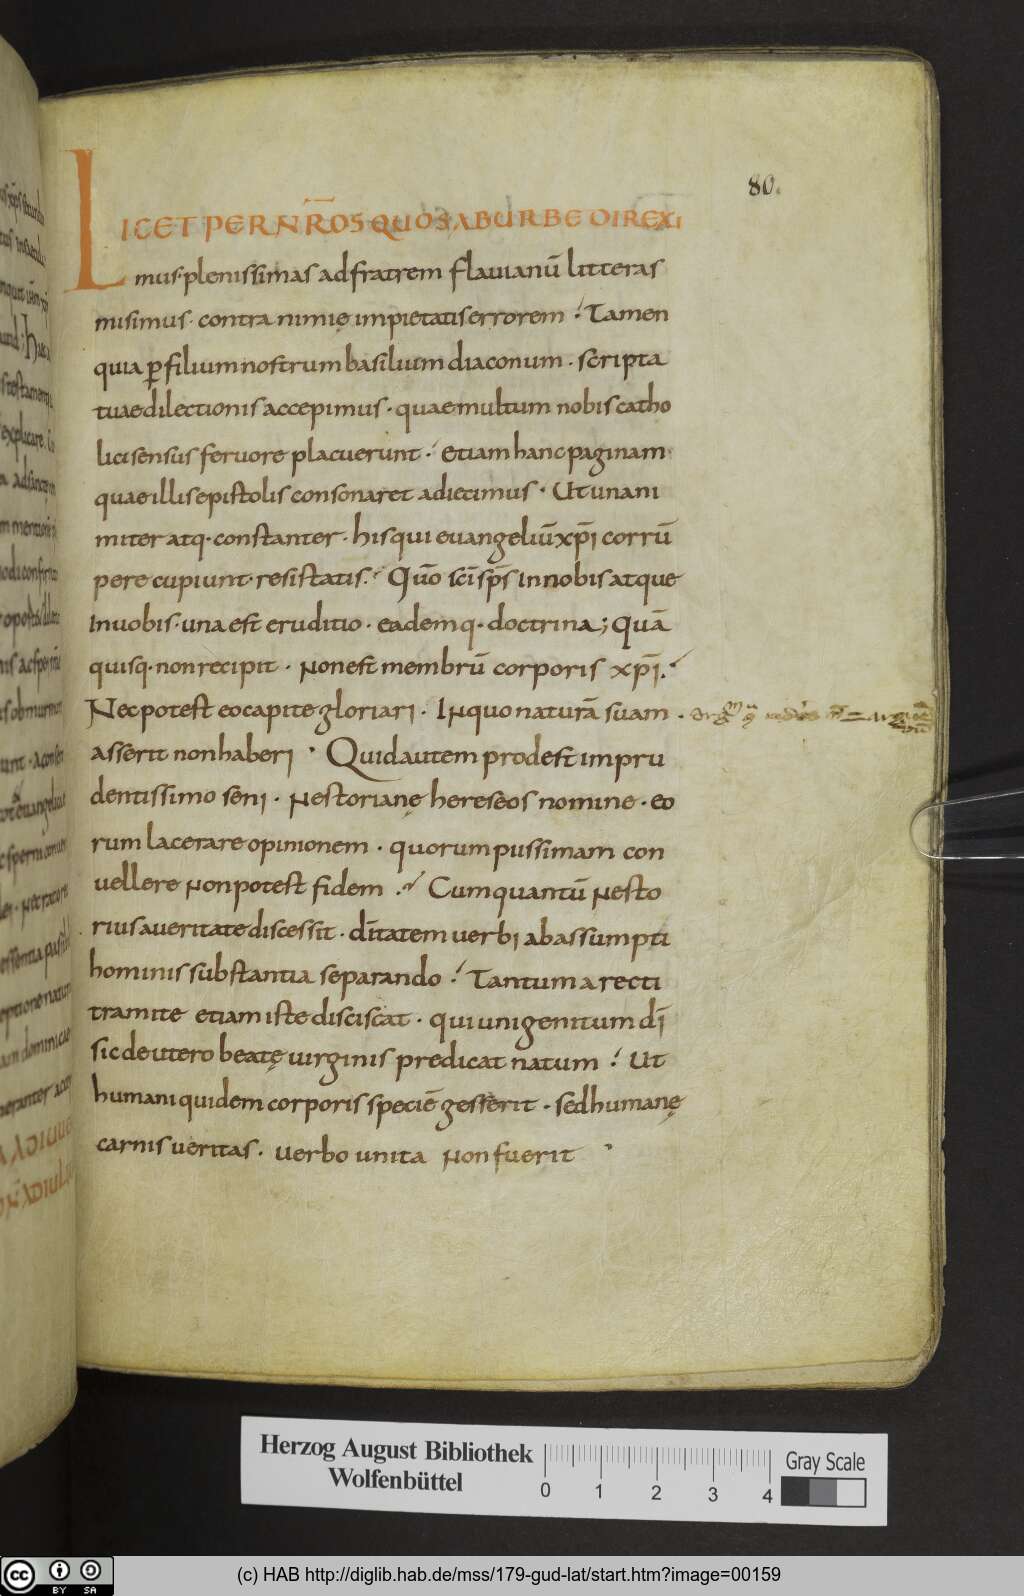 80.
LICET PER NR̄OS QUOS AB URBE DIREXI
mus · plenissimas ad fratrem flavianū litteras
misimus · contra nimię impietatis errorem ; Tamen
quia ꝑ filium nostrum basilium diaconum · scripta
tuae dilectionis accepimus · quae multum nobis catho
lici sensus fervore placuerunt · etiam hanc paginam
quae illis epistolis consonaret adiecimus · Ut unani
miter atq· constanter · his qui evangeliū xp̄i corrū
pere cupiunt · resistatis. Quō sc̄i sp̄s in nobis atque
in vobis · una est eruditio · eademq· doctrina ; Quā
quisq· non recipit · non est membrū corporis xp̄i.
Nec potest eo capite gloriari · In quo naturā suam ·
asserit non haberi · Quid autem prodest impru
dentissimo seni · nestorianę hereseos nomine · eo
rum lacerare opinionem · quorum piissimam con
vellere non potest fidem . Cum quantū nesto
rius a veritate discessit · dītatem verbi ab assumpti
hominis substantia separando ; Tantum a recti
tramite etiam iste disciscat · qui unigenitum dī
sic de utero beatę virginis predicat natum ; Ut
humani quidem corporis speciē gesserit · sed humanę
carnis veritas · verbo unita non fuerit
Herzog August Bibliothek
Wolfenbüttel
0 1 2 3 4
Gray Scale
cc BY SA
(c) HAB http://diglib.hab.de/mss/179-gud-lat/start.htm?image=00159